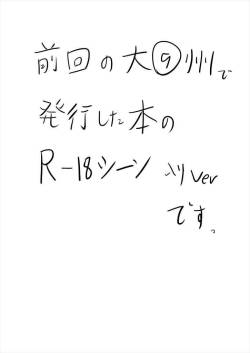 前回の大⑨州で
発行した本の
R-18シーン入りver
です。